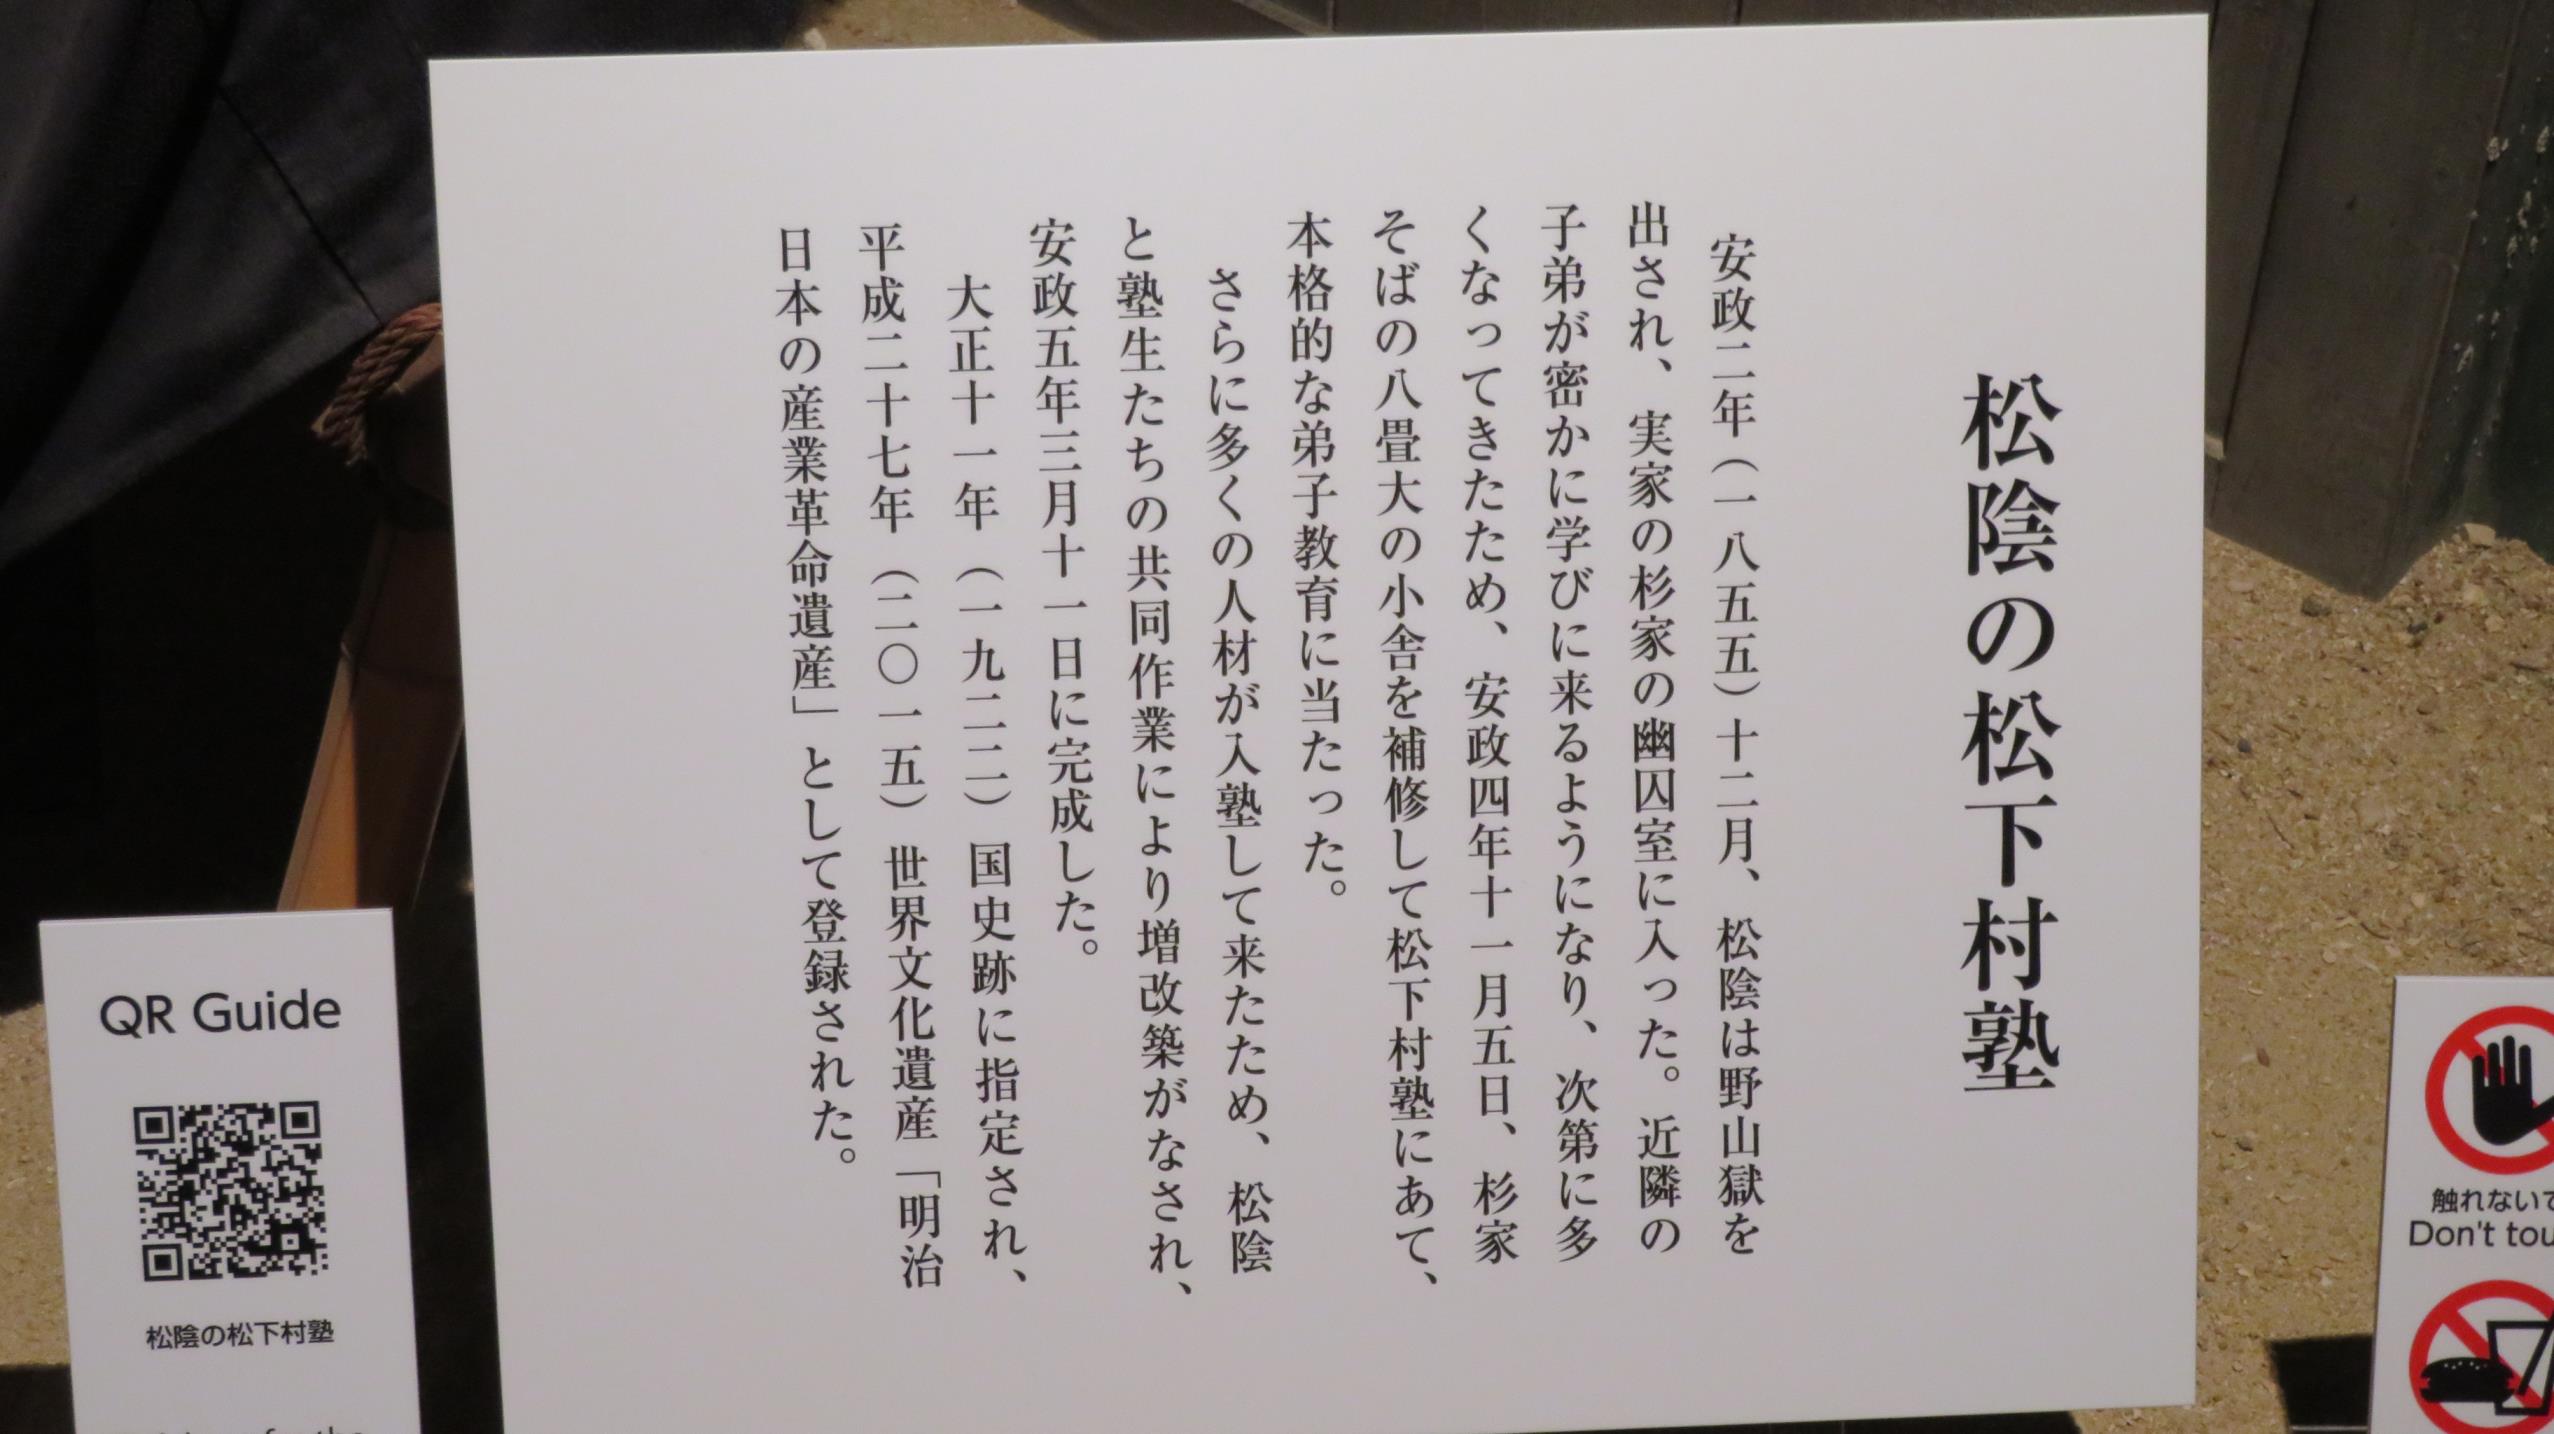 松陰の松下村塾
安政二年（一八五五）十二月、松陰は野山獄を
出され、実家の杉家の幽囚室に入った。近隣の
子弟が密かに学びに来るようになり、次第に多
くなってきたため、安政四年十一月五日、杉家
そばの八畳大の小舎を補修して松下村塾にあて、
本格的な弟子教育に当たった。
さらに多くの人材が入塾して来たため、松陰
と塾生たちの共同作業により増改築がなされ、
安政五年三月十一日に完成した。
大正十一年（一九二二）国史跡に指定され、
平成二十七年（二〇一五）世界文化遺産「明治
日本の産業革命遺産」として登録された。
QR Guide
松陰の松下村塾
触れないで
Don't tou